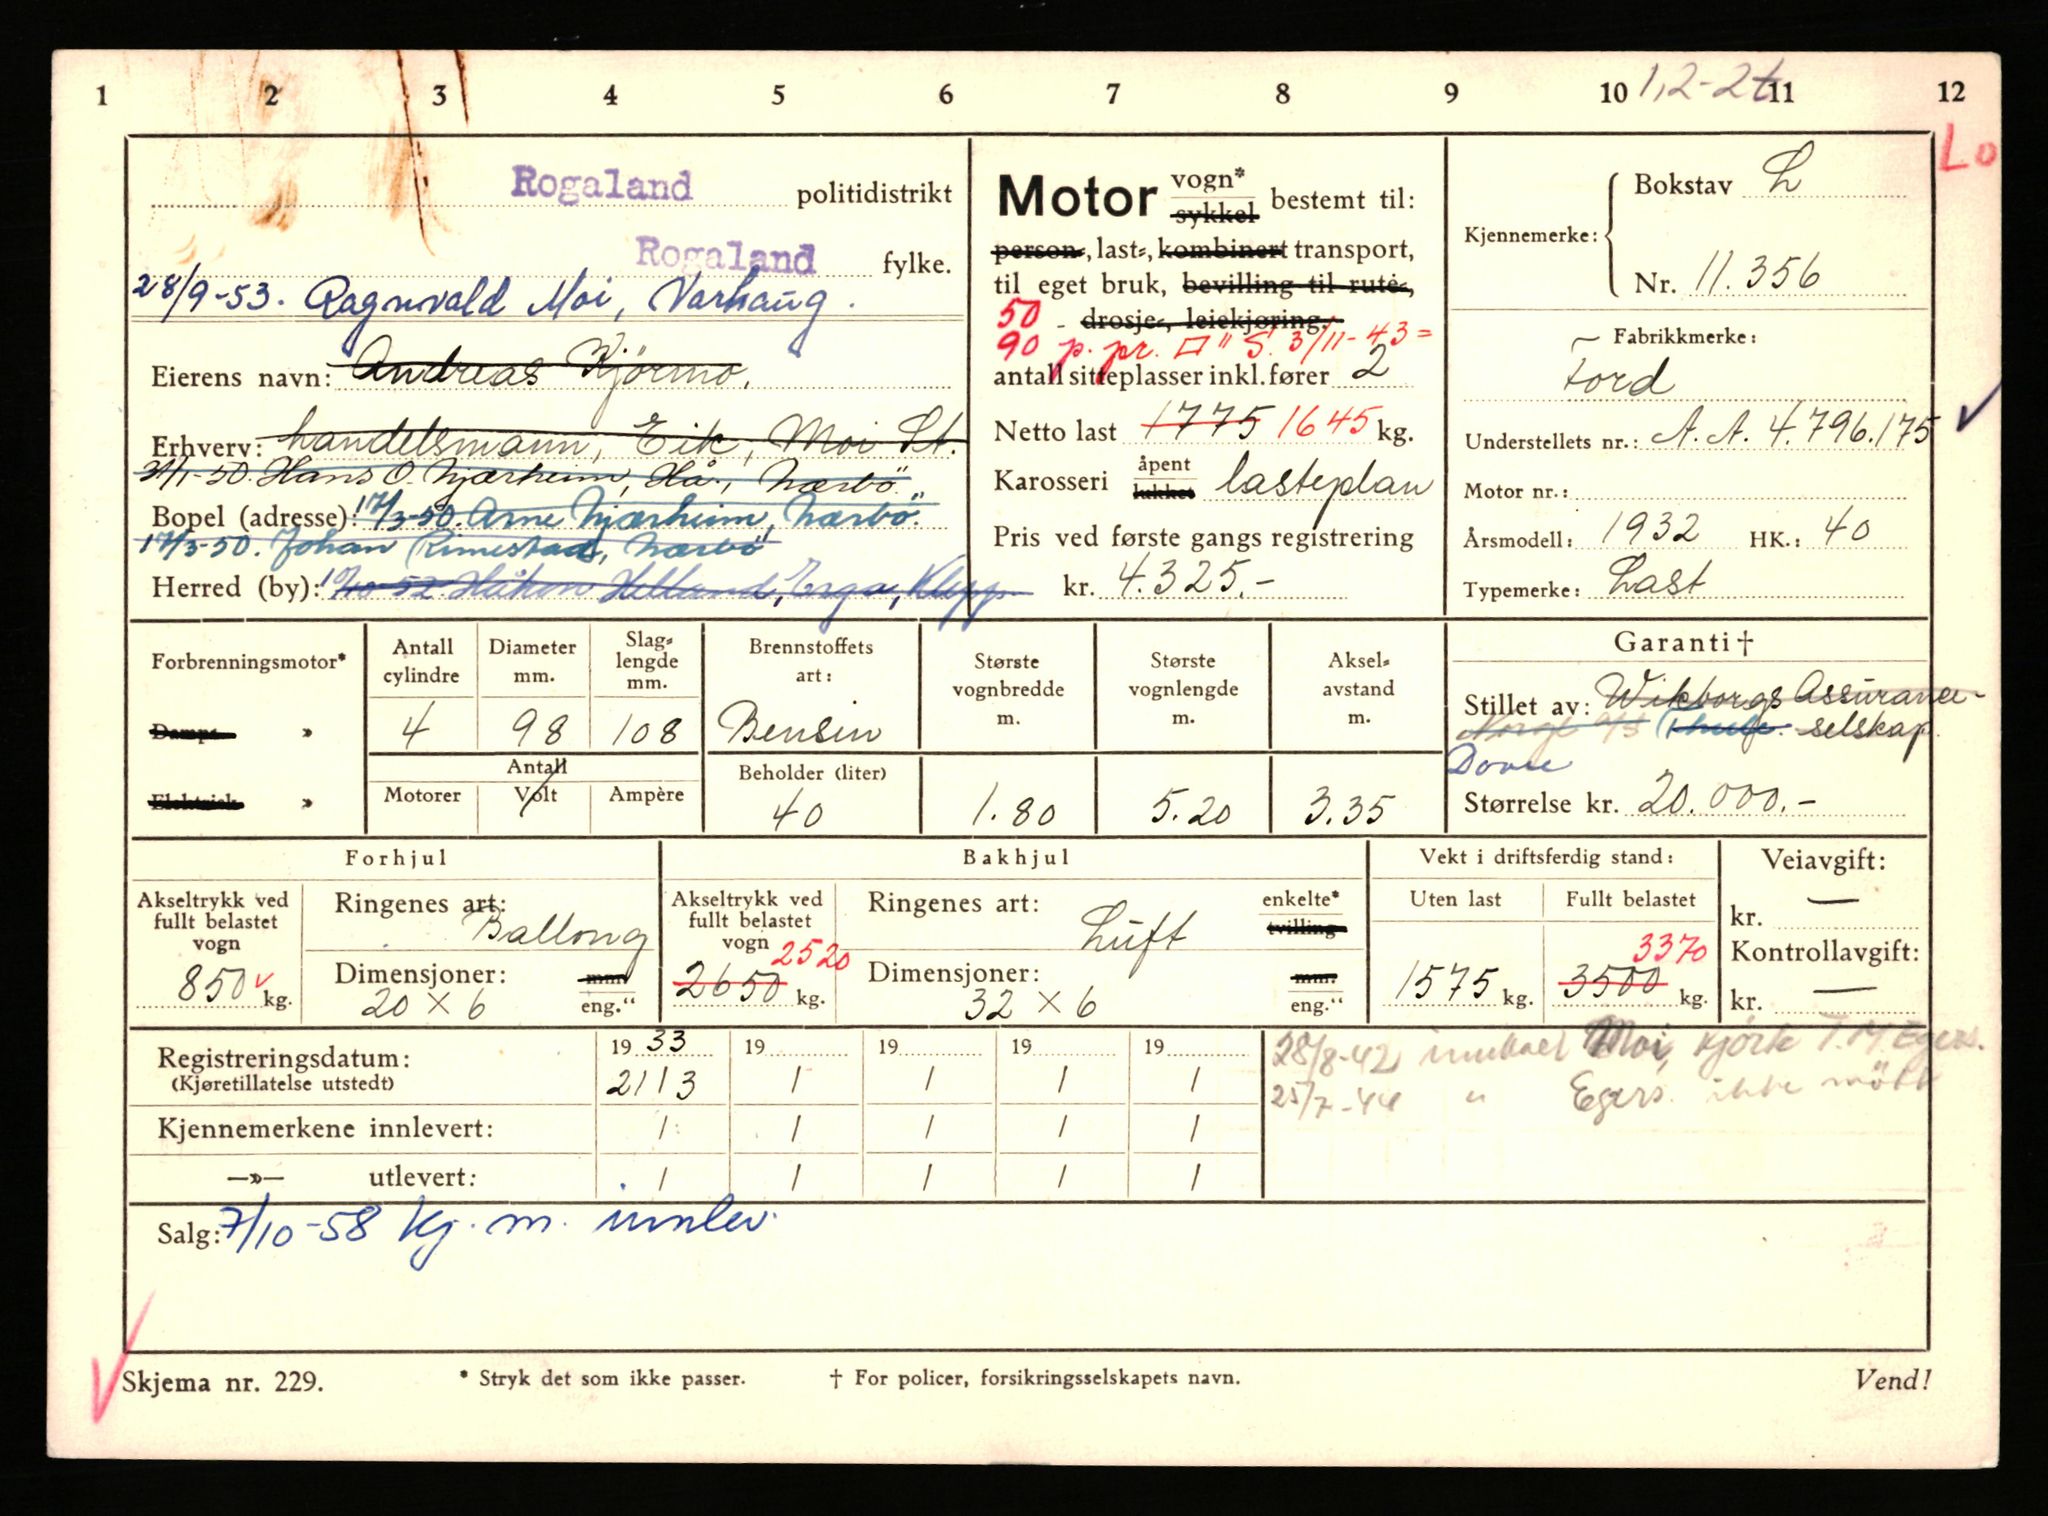 1 2 3 4 5 6 7 8 9 10 1,2-2t 11 12
Lo
Rogaland politidistrikt
Rogaland fylke.
28/9-53. Ragnvald Moi, Varhaug.
Eierens navn: Andreas Kjörmo.
Erhverv: handelsmann, Eik, Moi St.
31/1-50. Hans O. Njærheim, Hå, Nærbö
Bopel (adresse): 17/3-50. Arne Njærheim, Nærbö.
17/3-50. Johan Rimestad, Nærbö
Herred (by): 1/10-52 Håkon Helland, Erga, Klepp
Motor vogn* sykkel bestemt til:
person-, last-, kombinert transport,
til eget bruk, bevilling til rute-,
50 - drosje-, leiekjøring.
90 p. pr. □" S. 3/11-43=
antall sitteplasser inkl. fører 2
Netto last 1775 1645 kg.
Karosseri åpent lukket lasteplan
Pris ved første gangs registrering
kr. 4.325.-
Kjennemerke: Bokstav L
Nr. 11.356
Fabrikkmerke:
Ford
Understellets nr.: A.A. 4.796.175
Motor nr.:
Årsmodell: 1932 HK.: 40
Typemerke: Last
Forbrenningsmotor*
Damps- »
Elektrisk »
Antall cylindre 4
Diameter mm. 98
Slag-lengde mm. 108
Antall
Motorer Volt Ampère
Brennstoffets art: Bensin
Beholder (liter) 40
Største vognbredde m. 1.80
Største vognlengde m. 5.20
Aksel-avstand m. 3.35
Garanti †
Stillet av: Wikborgs Assurance-
Norge A/S Thule. selskap.
Dovre
Størrelse kr. 20.000.-
Forhjul
Akseltrykk ved fullt belastet vogn
850 kg.
Ringenes art: Ballong
Dimensjoner: mm
20 × 6 eng."
Bakhjul
Akseltrykk ved fullt belastet vogn 2520
2650 kg.
Ringenes art: Luft enkelte* tvilling-
Dimensjoner: mm.
32 × 6 eng."
Vekt i driftsferdig stand:
Uten last Fullt belastet
3370
1575 kg. 3500 kg.
Veiavgift:
kr. —
Kontrollavgift:
kr. —
Registreringsdatum: 1933 19 19 19 19
(Kjøretillatelse utstedt) 21/3 / / / /
Kjennemerkene innlevert: / / / / /
—»— utlevert: / / / / /
28/8-42 innkalt Moi, kjörte T.M. Egers.
25/7-44 " Egers. ikke mött
Salg: 7/10-58 kj. m. innlev.
Skjema nr. 229.
* Stryk det som ikke passer.
† For policer, forsikringsselskapets navn.
Vend!